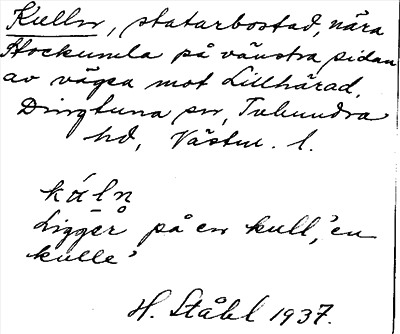 Kullen, statarbostad, nära
Stockumla på vänstra sidan
av vägen mot Lillhärad,
Dingtuna sn, Tuhundra
hd, Västm. l.
káln
Ligger på en kull, 'en
kulle'
H. Ståhl 1937.